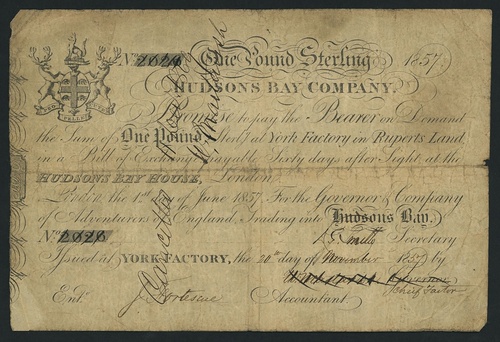 No. 2020 One Pound Sterling 1857
HUDSONS BAY COMPANY.
I Promise to pay the Bearer on Demand
the Sum of One Pound Sterl.g at York Factory in Ruperts Land
in a Bill of Exchange payable Sixty days after Sight at the
HUDSONS BAY HOUSE, London.
London the 1st day of June 1857. For the Governor & Company
of Adventurers of England, Trading into Hudsons Bay.
No. 2020 Secretary
Issued at YORK FACTORY, the 20th day of November 1857 by
Governor,
Chief Factor
Ent.d J. Fortescue Accountant.
Cancelled